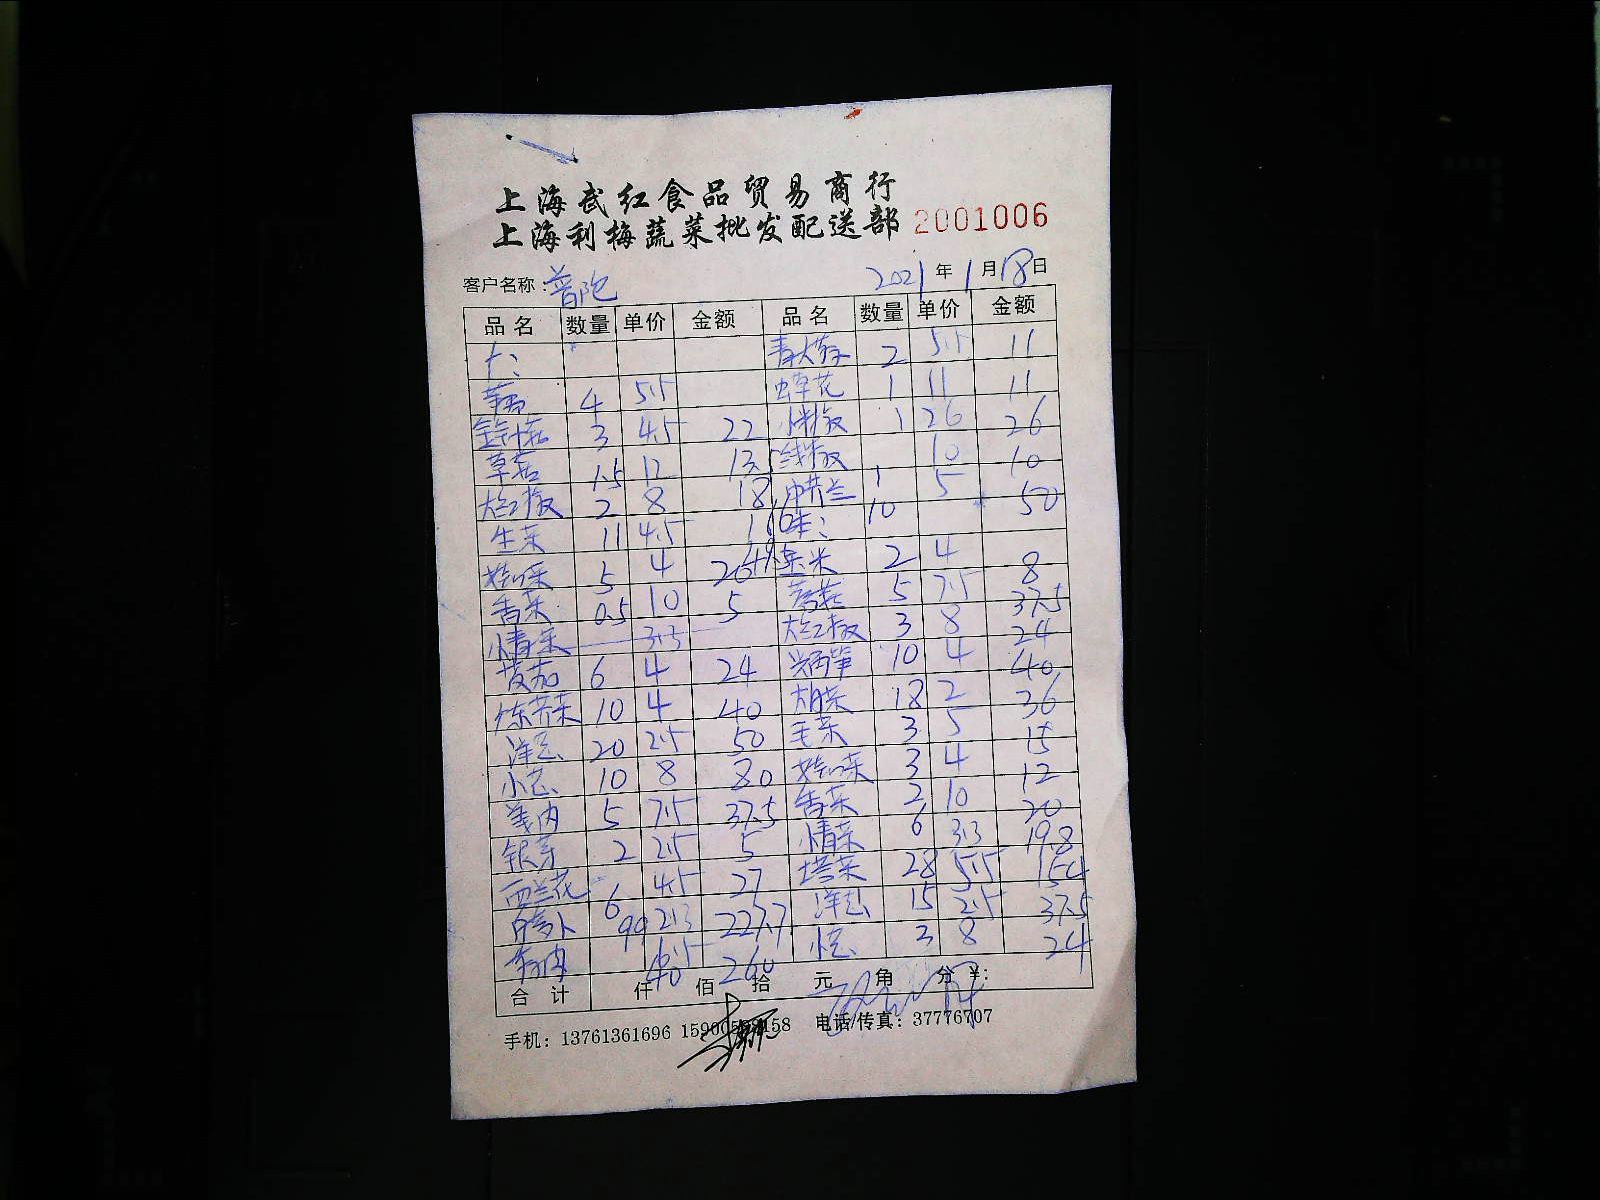 上海武红食品贸易商行
上海利梅蔬菜批发配送部 2001006
客户名称：普陀 2021年1月18日
品名 数量 单价 金额 品名 数量 单价 金额
2 5.5 11
4 5.5 虫草花 1 11 11
3 4.5 22 小米椒 1 26 26
草菇 1.5 12 13.5 线椒 1 10 10
大红椒 2 8 18 10 5 50
生菜 11 4.5 16
娃娃菜 5 4 玉米 2 4 8
香菜 0.5 10 5 5 7.5 37.5
3.3 大红椒 3 8 24
6 4 24 10 4 40
10 4 40 18 2 36
洋葱 20 2.5 50 毛菜 3 5 15
小葱 10 8 80 娃娃菜 3 4 12
5 7.5 37.5 香菜 2 10 20
银芽 2 2.5 5 6 3.3 19.8
西兰花 6 4.5 27 塔菜 28 5.5 154
白萝卜 99 2.3 227.7 洋葱 15 2.5 37.5
40 6.5 260 小葱 3 8 24
合计 仟 佰 拾 元 角 分 ¥：
手机：13761361696 电话/传真：37776707